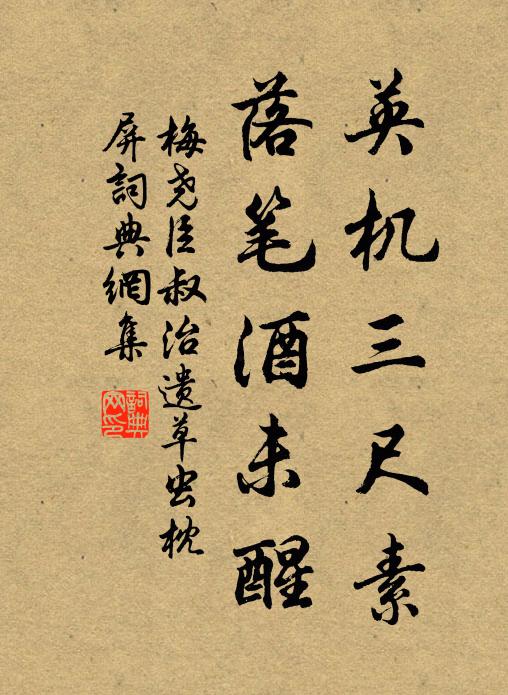 英机三尺素
落笔酒未醒
梅尧臣叔治遗草虫枕
屏詞典網集
詞典网印